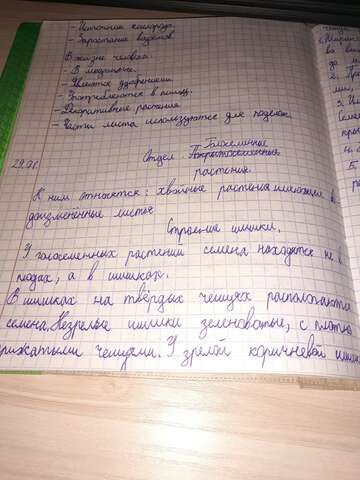 - Источник кислорода.
- Зарастание водоёмов
В жизни человека.
- В медицине.
- Является удобрением.
- Употребляются в пищу.
- Декоративные растения
- Части листа используются для поделок.
29.01. Отдел Голосеменные
Покрытосеменные
растения.
К ним относятся: хвойные растения имеющие в
доизмененные листья
Строение шишки.
У голосеменных растений семена находятся не в
плодах, а в шишках.
В шишках на твёрдых чешуях располагаются
семена. Незрелые шишки зеленоватые, с плотно
прижатыми чешуями. У зрелой коричневой
во
2.
3.
4.
5.